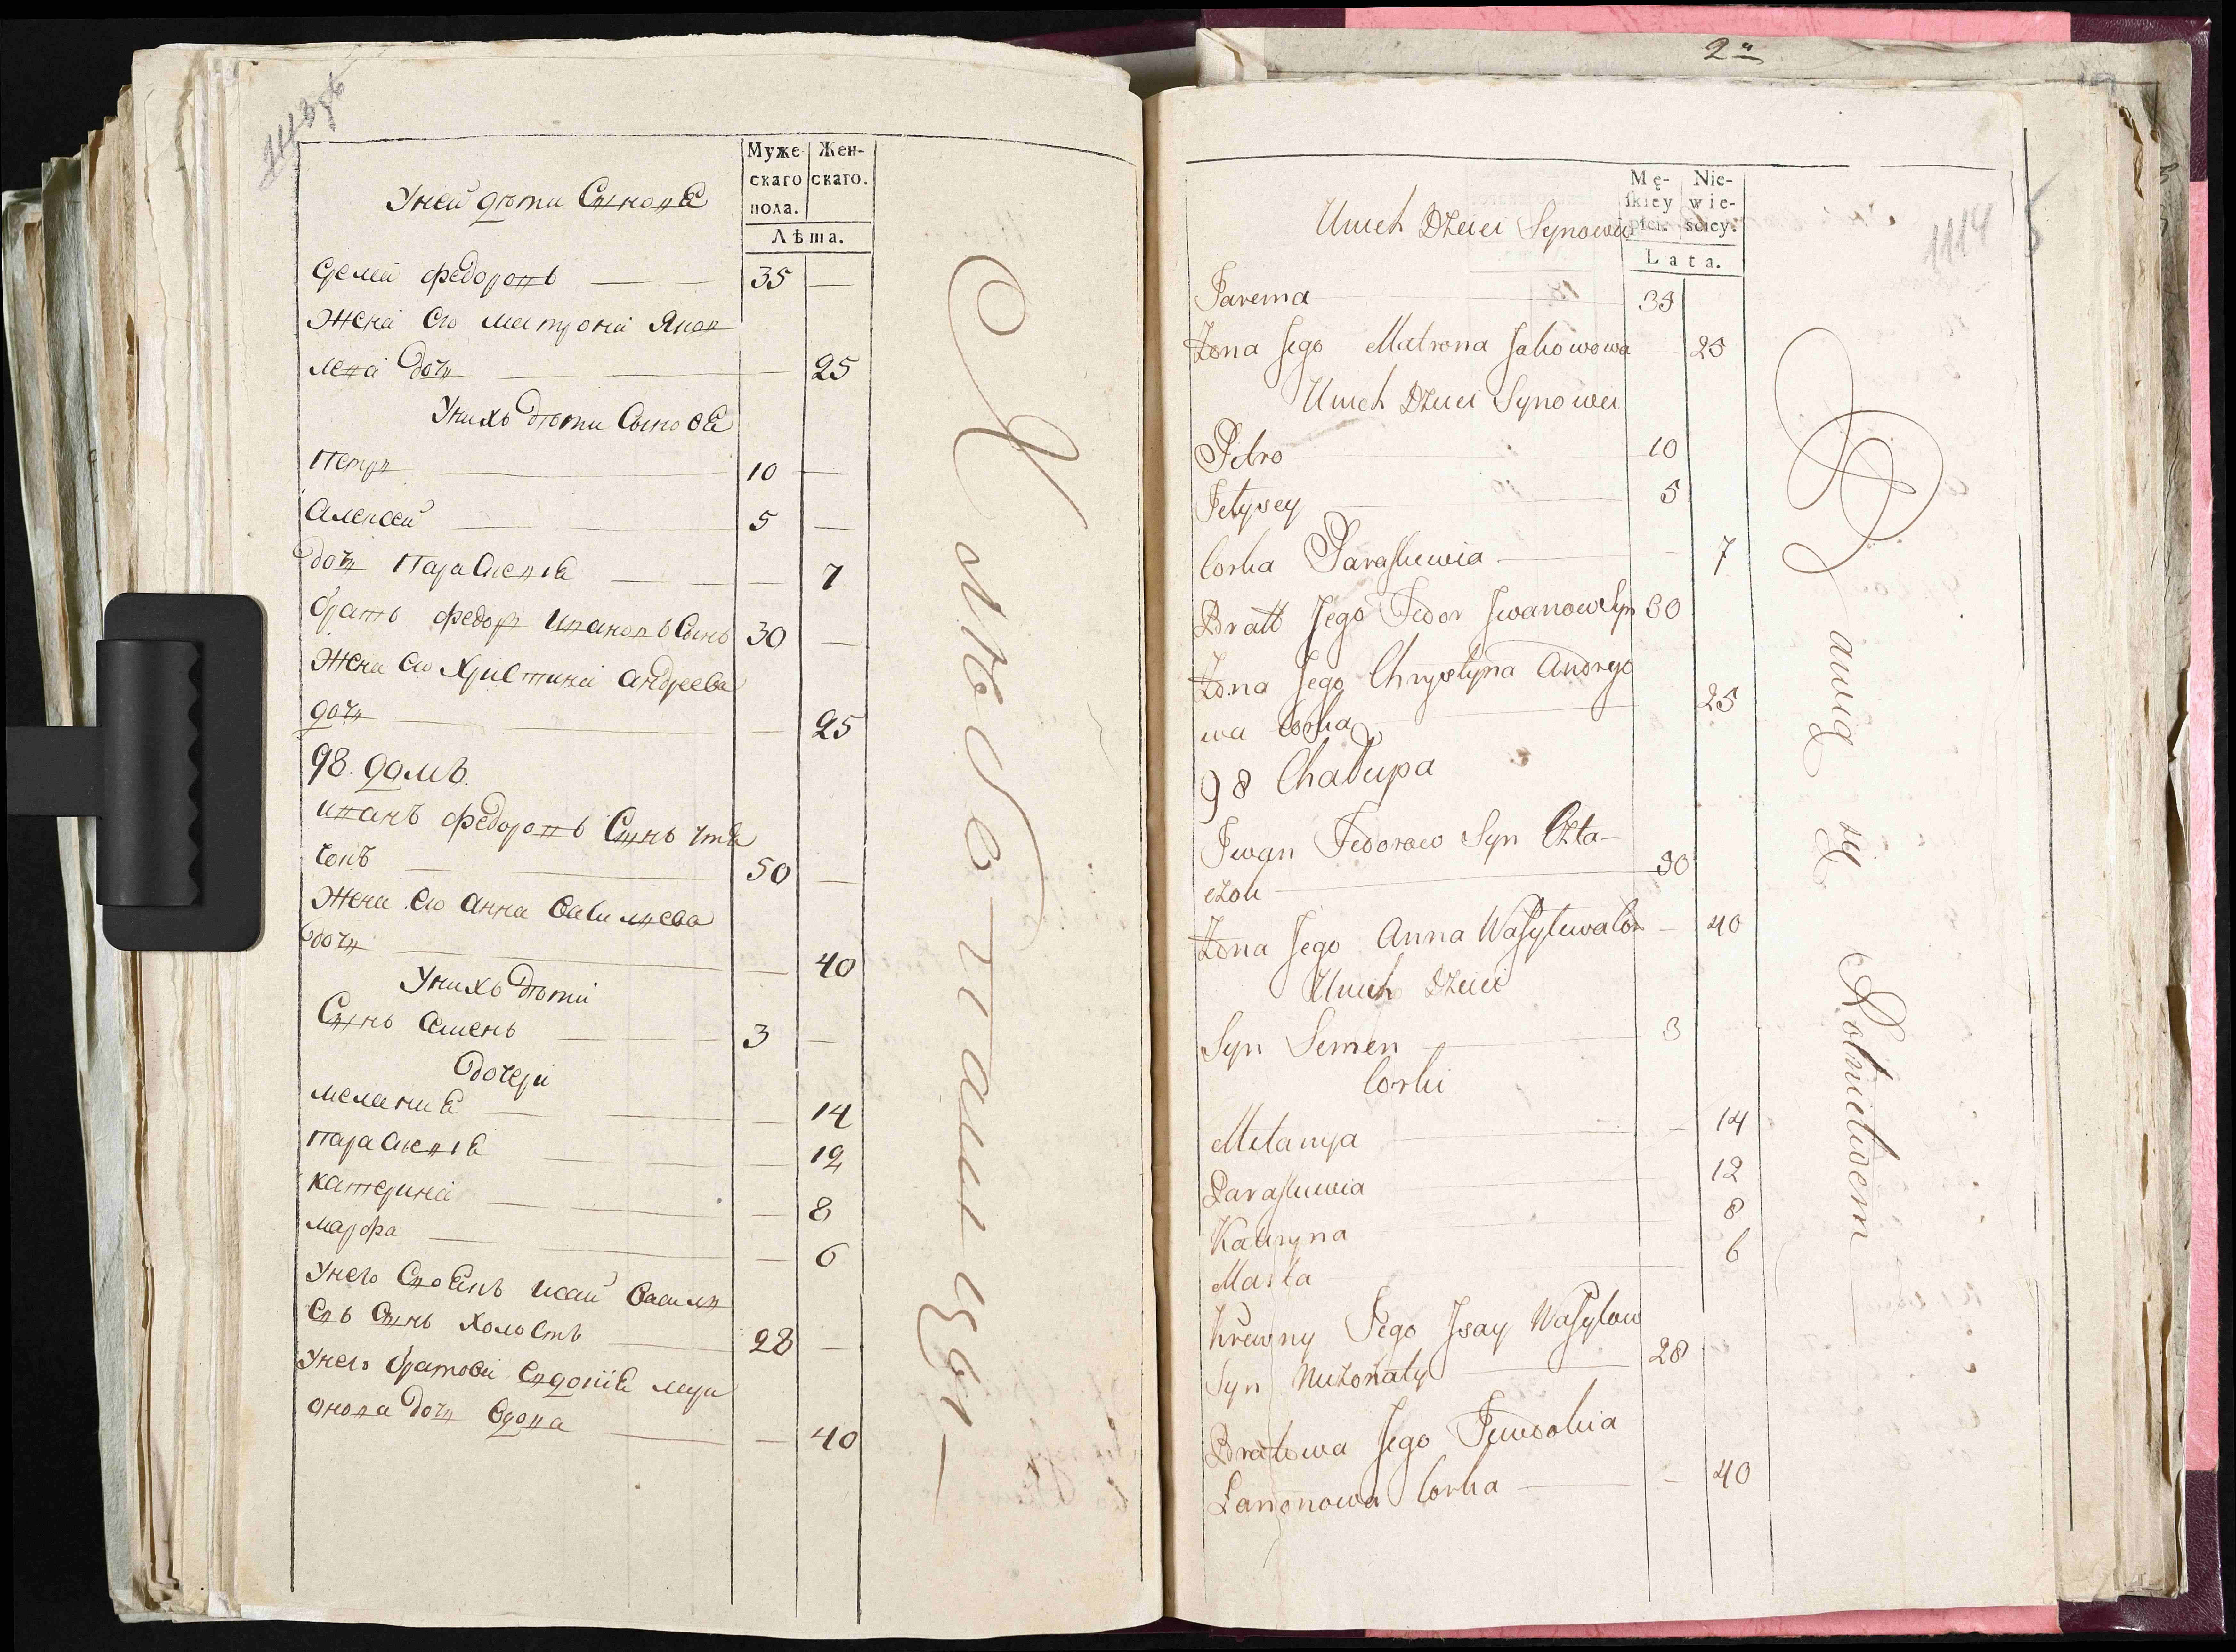 Муже-
скаго
пола.
Жен-
скаго.
Лѣта.
Уней дѣти Сынове
Федоровъ 35 —
Жена его Матрона Яков
лева дочь — 25
Унихъ дѣти Сынове
Петръ 10 —
Алексей 5 —
дочь Параскевiя — 7
братъ Федоръ Ивановъ Сынъ 30 —
Жена его Христина Андреева
дочь — 25
98. домъ.
Иванъ Федоровъ Сынъ
50 —
Жена его Анна Васильева
дочь — 40
Унихъ дѣти
Сынъ Семенъ 3 —
дочери
Мелания — 14
Параскевiя — 12
Катерина — 8
Марфа — 6
Унего Исай Василь
евъ Сынъ холостъ 28 —
Унего братова
дочь вдова — 40
2я
1114
Mę-
skiey
płci.
Nie-
wie-
sciey.
Lata.
Unich Dzieci Synowie
Jarema 35
Żona Jego Matrona Jakowowa — 25
Unich Dzieci Synowei
Petro 10
5
Corka Paraskiewia — 7
Bratt Jego Fedor Iwanow Syn 30
Żona Jego Chrystyna Andrejo
wa Corka 25
98 Chałupa
Iwan Fedorow Syn Czta-
czou 50
Żona Jego Anna Wasylewa Cor — 40
Unich Dzieci
Syn Semen 3
Corki
Mełanya — 14
Paraskiewia 12
Kateryna 8
Marta 6
Krewny Jego Isay Wasylow
Syn Nieżonaty 28
Bratowa Jego Jewdokia
Larionowa Corka — 40
Dawid